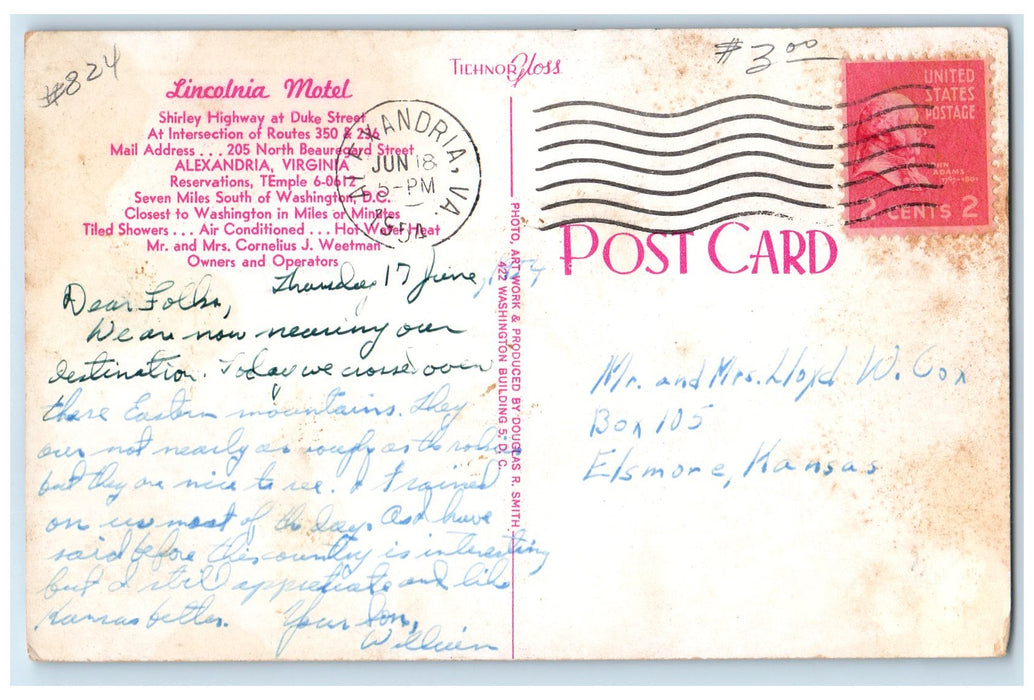 #824
Lincolnia Motel
Shirley Highway at Duke Street
At Intersection of Routes 350 & 236
Mail Address . . . 205 North Beauregard Street
ALEXANDRIA, VIRGINIA
Reservations, TEmple 6-0612
Seven Miles South of Washington, D.C.
Closest to Washington in Miles or Minutes
Tiled Showers . . . Air Conditioned . . . Hot Water Heat
Mr. and Mrs. Cornelius J. Weetman
Owners and Operators
TICHNOR Gloss
#3.00
ALEXANDRIA, VA.
JUN 18
5-PM
1954
UNITED
STATES
POSTAGE
JOHN
ADAMS
1797-1801
2 CENTS 2
POST CARD
PHOTO, ART WORK & PRODUCED BY DOUGLAS R. SMITH
422 WASHINGTON BUILDING 5, D. C.
Thursday 17 June, 1954
Dear Folks,
We are now nearing our
destination. Today we crossed over
these Eastern mountains. They
are not nearly as rough as the rockies
but they are nice to see. It rained
on us most of the day. As I have
said before this country is interesting
but I still appreciate and like
Kansas better. Your Son,
William
Mr. and Mrs. Lloyd W. Cox
Box 105
Elsmore, Kansas